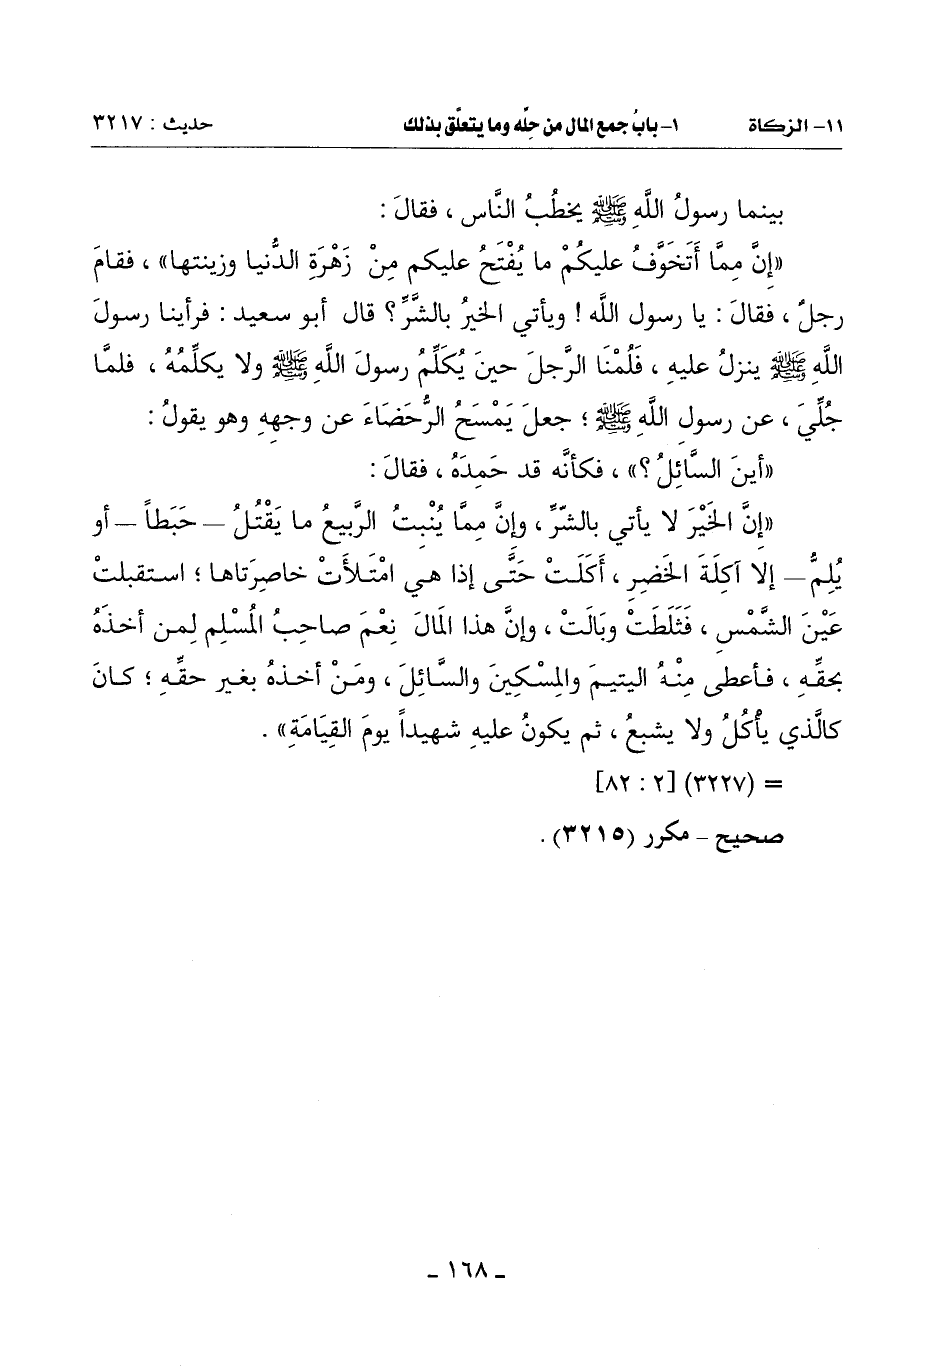 ١١- الزكاة ١- بابُ جمع المال من حِلّه وما يتعلّق بذلك حديث : ٣٢١٧
بينما رسولُ اللَّهِ ﷺ يخطُبُ النَّاس ، فقالَ :
«إنَّ مِمَّا أَتَخَوَّفُ عليكُمْ ما يُفْتَحُ عليكم مِنْ زَهْرَةِ الدُّنيا وزينتها» ، فقامَ
رجلٌ ، فقالَ : يا رسول اللَّه ! ويأتي الخيرُ بالشَّرِّ ؟ قال أبو سعيد : فرأينا رسولَ
اللَّهِ ﷺ ينزلُ عليهِ ، فَلُمْنَا الرَّجلَ حينَ يُكَلِّمُ رسولَ اللَّهِ ﷺ ولا يكلِّمُهُ ، فلمَّا
جُلِّيَ ، عن رسولِ اللَّهِ ﷺ ؛ جعلَ يَمْسَحُ الرُّحَضَاءَ عن وجههِ وهو يقولُ :
«أينَ السَّائِلُ ؟» ، فكأنَّه قد حَمِدَهُ ، فقالَ :
«إنَّ الخَيْرَ لا يأتي بالشَّرِّ ، وإنَّ مِمَّا يُنْبِتُ الرَّبيعُ ما يَقْتُلُ – حَبَطاً – أو
يُلِمُّ – إلا آكِلَةَ الخَضِرِ ، أَكَلَتْ حَتَّى إذا هي امْتَلأَتْ خاصِرَتاها ؛ استقبلتْ
عَيْنَ الشَّمْسِ ، فَثَلَطَتْ وبَالَتْ ، وإنَّ هذا المَالَ نِعْمَ صاحِبُ المُسْلِمِ لِمن أخذَهُ
بحقِّهِ ، فأعطى مِنْهُ اليتيمَ والمِسْكِينَ والسَّائِلَ ، ومَنْ أخذهُ بغيرِ حقِّهِ ؛ كانَ
كالَّذي يأْكُلُ ولا يشبعُ ، ثم يكونُ عليهِ شهيداً يومَ القِيَامَةِ» .
= (٣٢٢٧) [٢ : ٨٢]
صحيح – مكرر (٣٢١٥) .
ـ ١٦٨ ـ